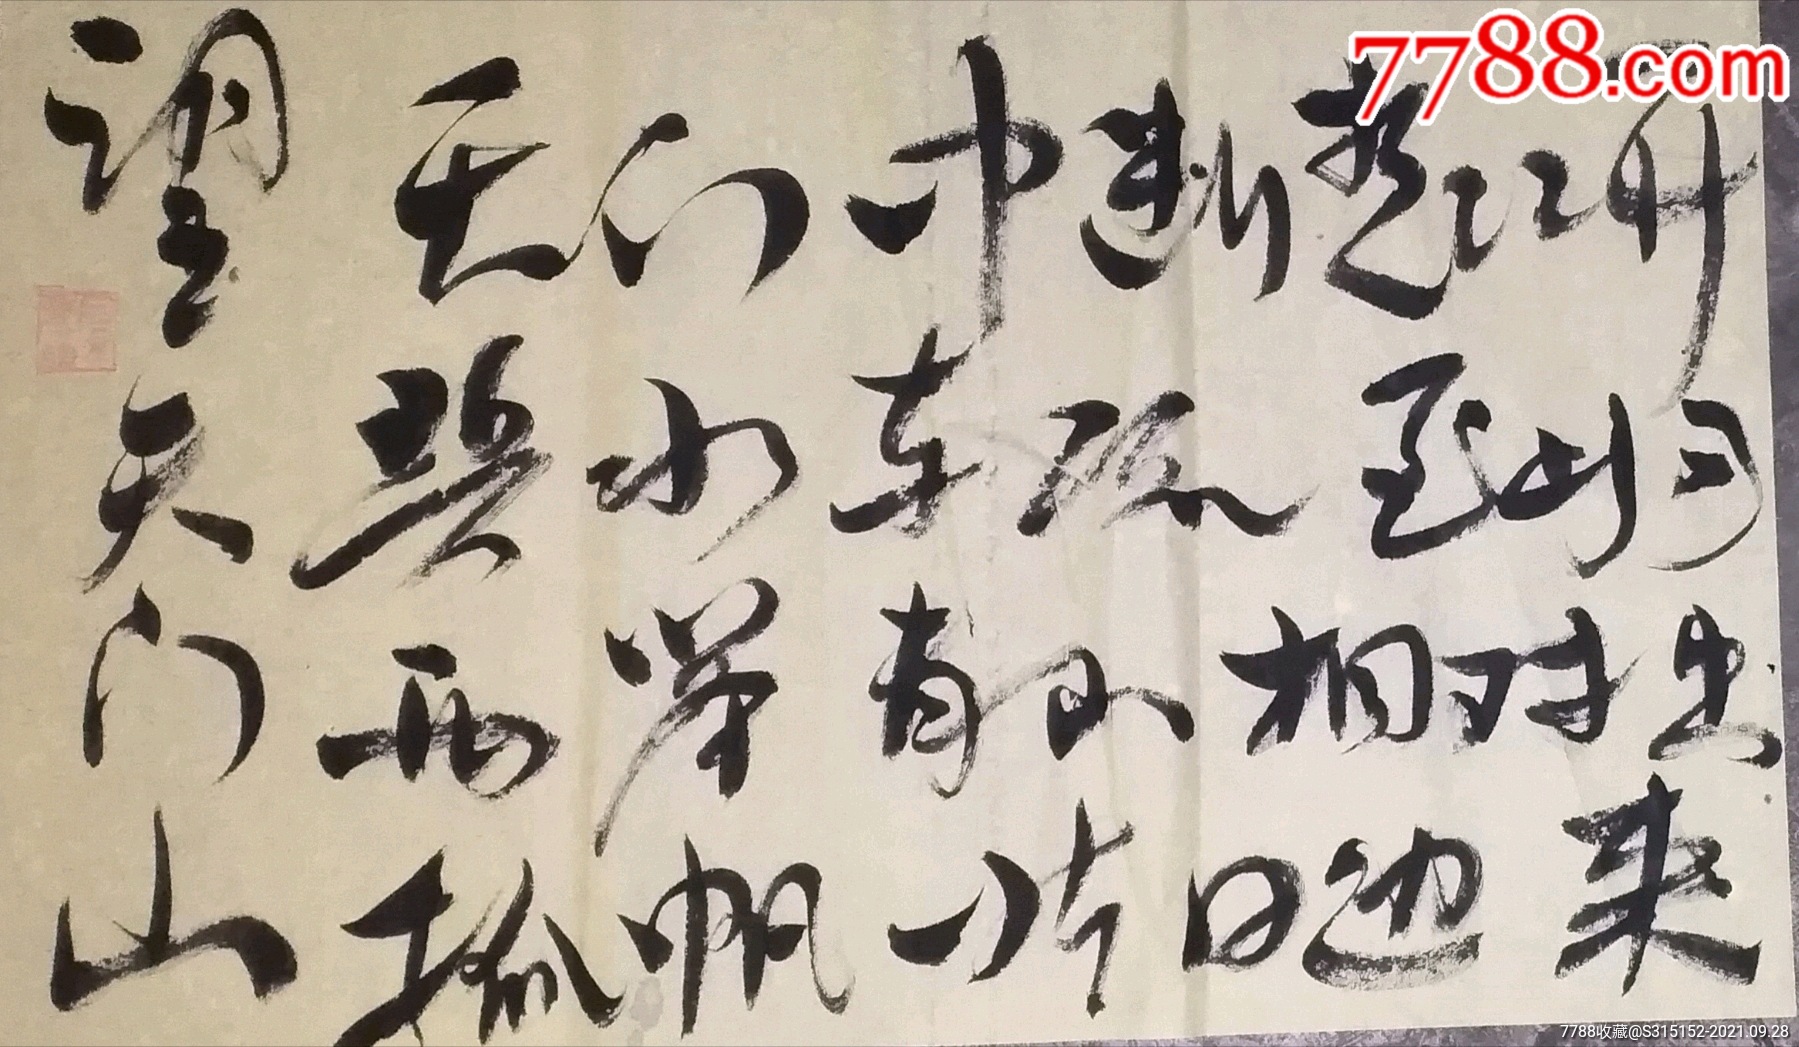 7788.com
望天门山
天门中断楚江开
碧水东流至此回
两岸青山相对出
孤帆一片日边来
7788收藏@S315152-2021.09.28